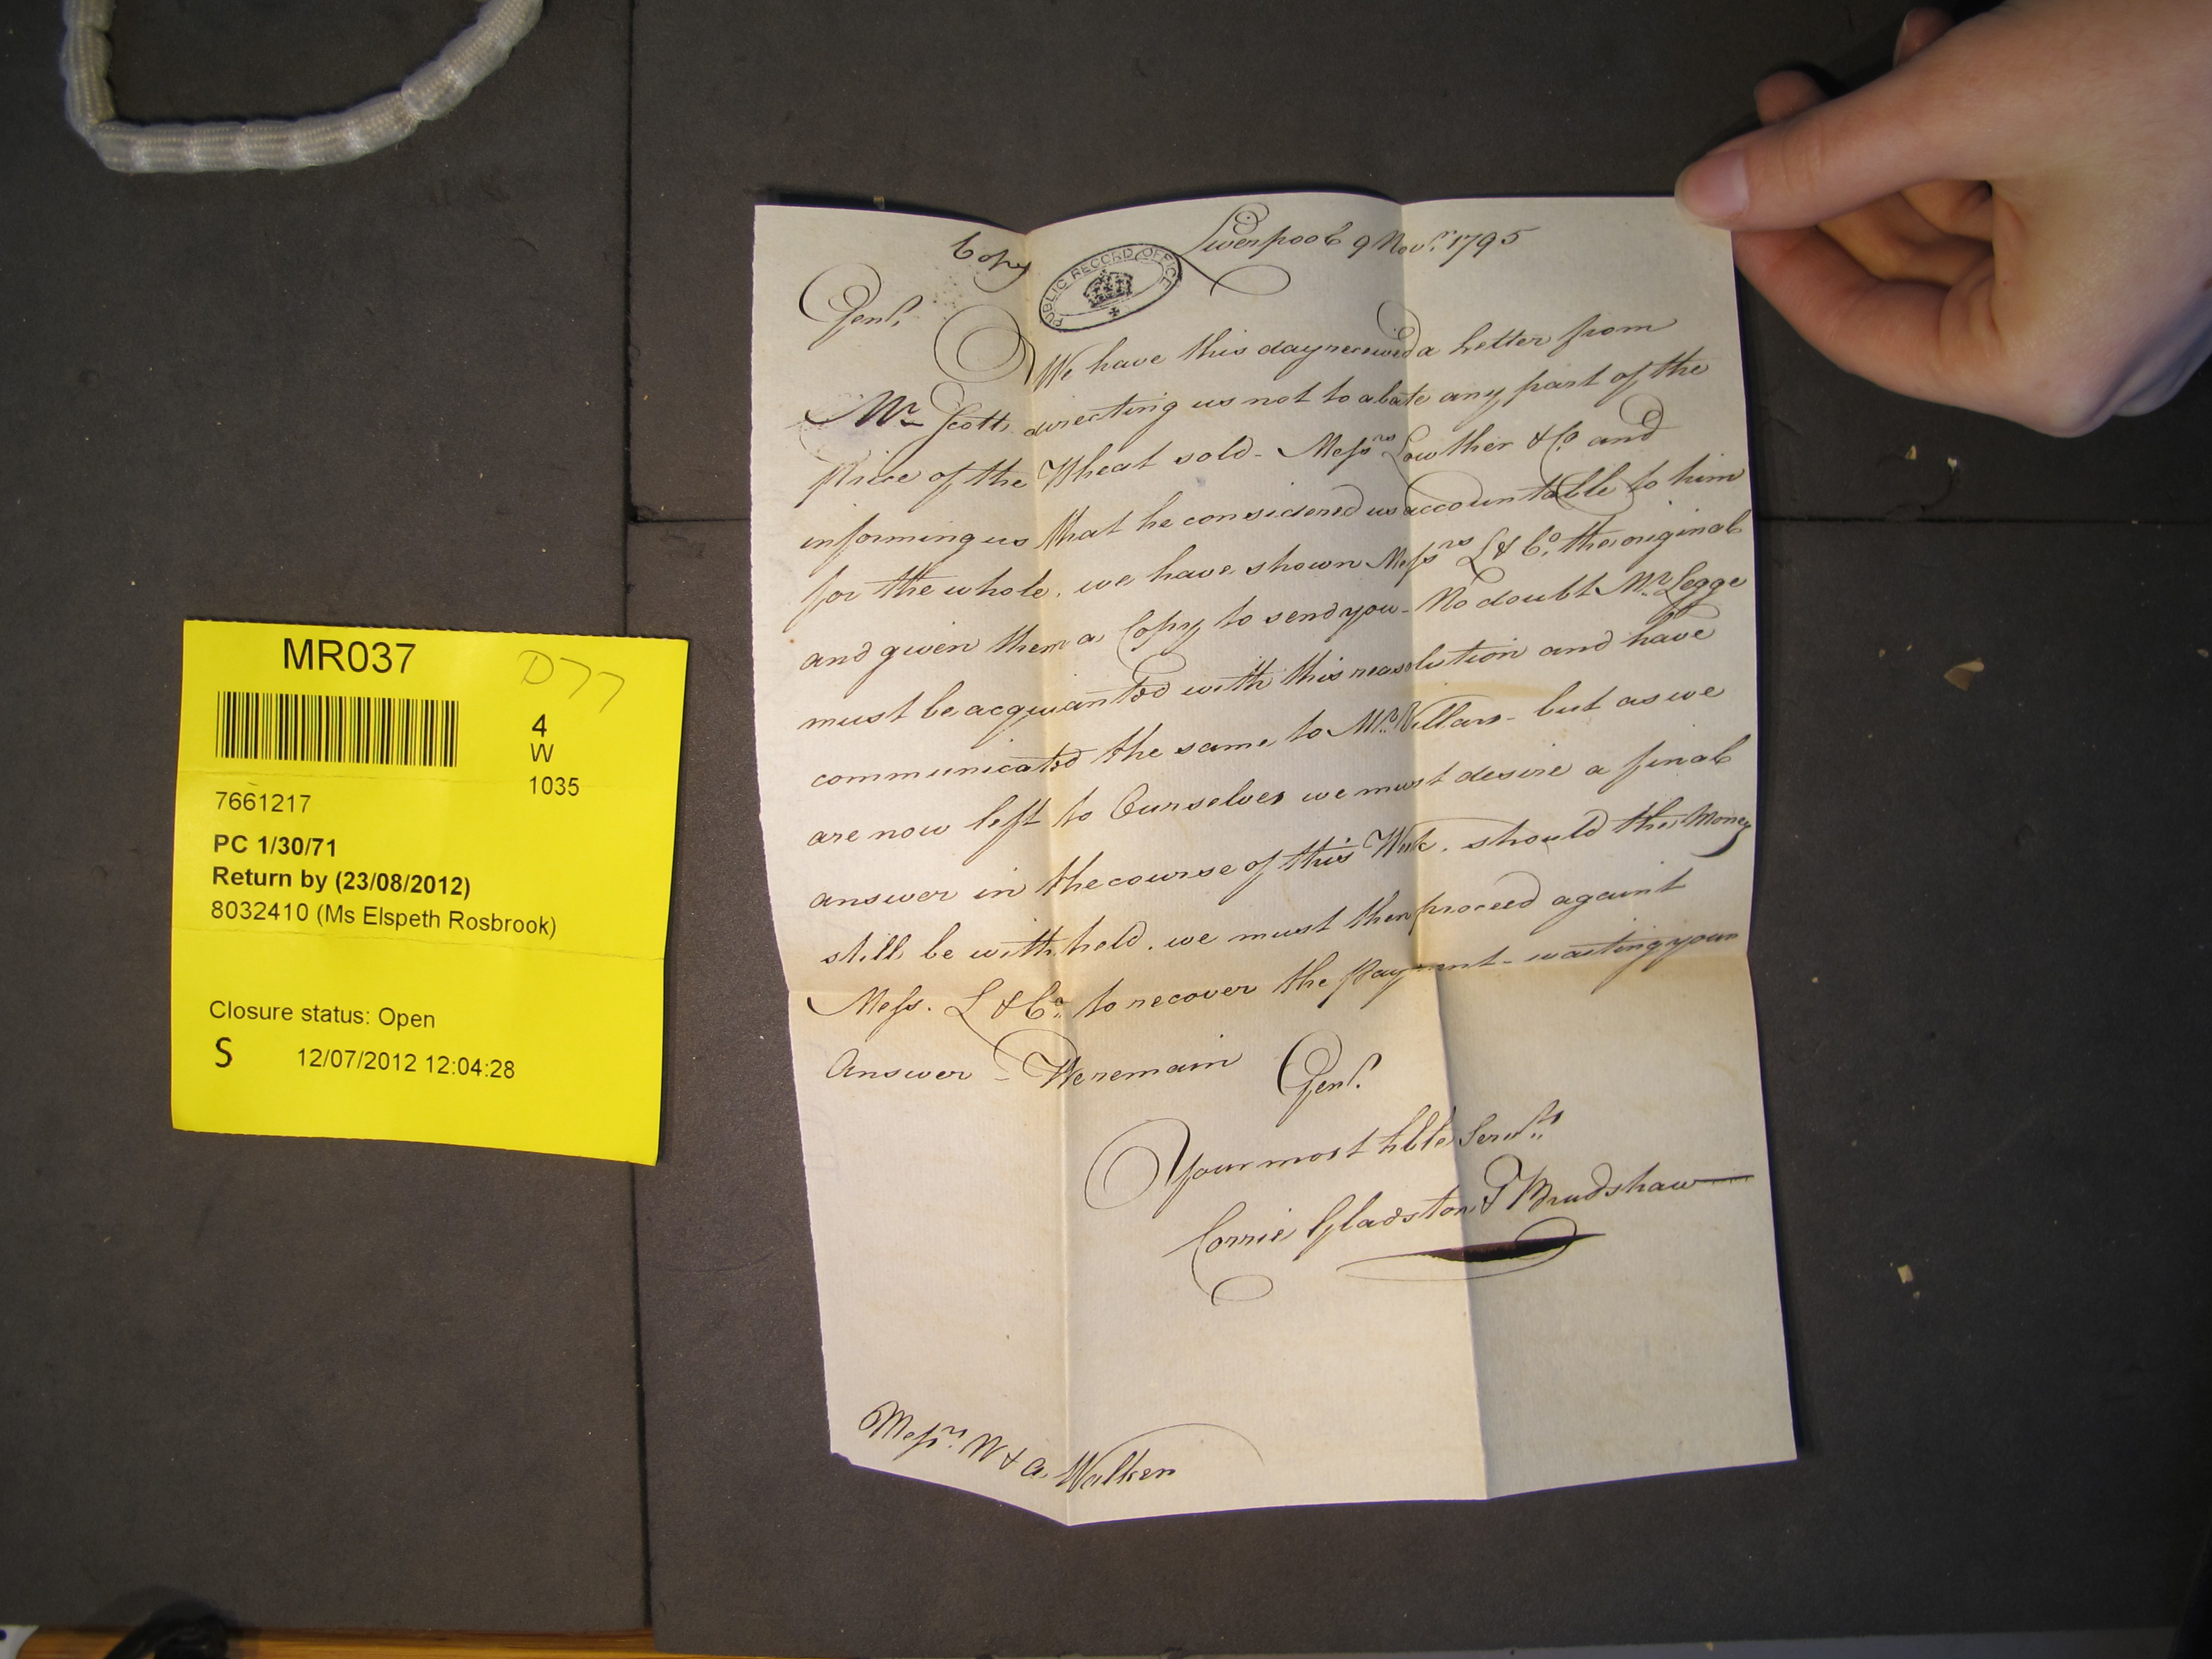 Copy
Liverpool 9 Novr. 1795
PUBLIC RECORD OFFICE
Gent.
We have this day received a Letter from
Mr Scott, directing us not to abate any part of the
Price of the Wheat sold - Messrs Lowther & Co. and
informing us that he considered us accountable to him
for the whole, we have shown Messrs L & Co. the original
and given them a Copy to send you - No doubt Mr. Legge
must be acquianted with this reasolution and have
communicated the same to Mr. Villars - but as we
are now left to Ourselves we must desire a final
answer in the course of this Week, should the Money
still be withheld, we must then proceed againt
Mess. L & Co. to recover the Payment - waiting your
Answer - We remain Gent.
Your most hble Servts.
Corrie Gladston & Bradshaw
Messrs. W & A. Walker
MR037
D77
4
W
1035
7661217
PC 1/30/71
Return by (23/08/2012)
8032410 (Ms Elspeth Rosbrook)
Closure status: Open
S 12/07/2012 12:04:28